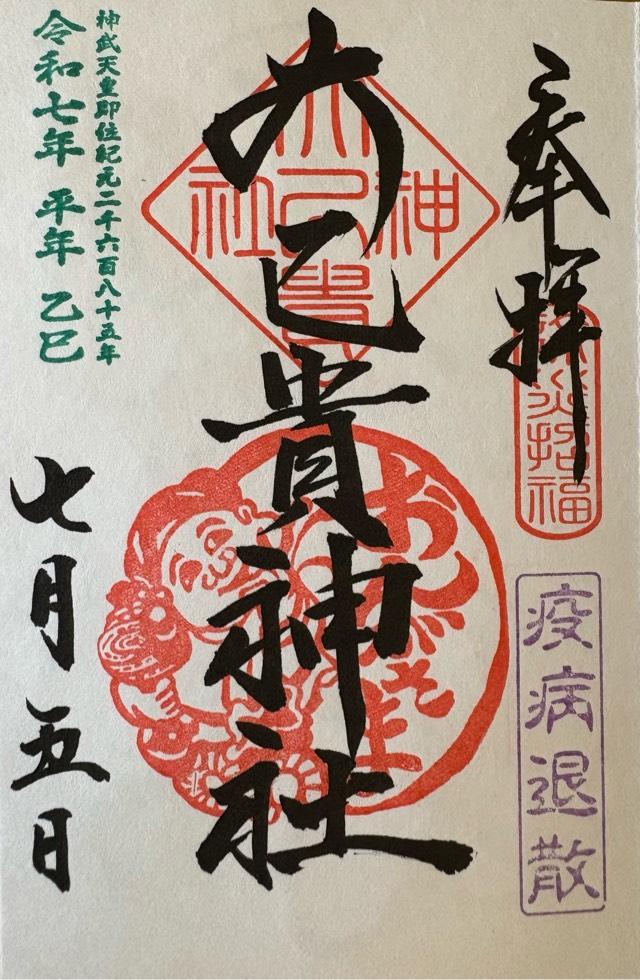 奉拝
除災招福
疫病退散
大己貴神社
大己貴
神
社
おんがさま
神武天皇即位紀元二千六百八十五年
令和七年 平年 乙巳
七月五日